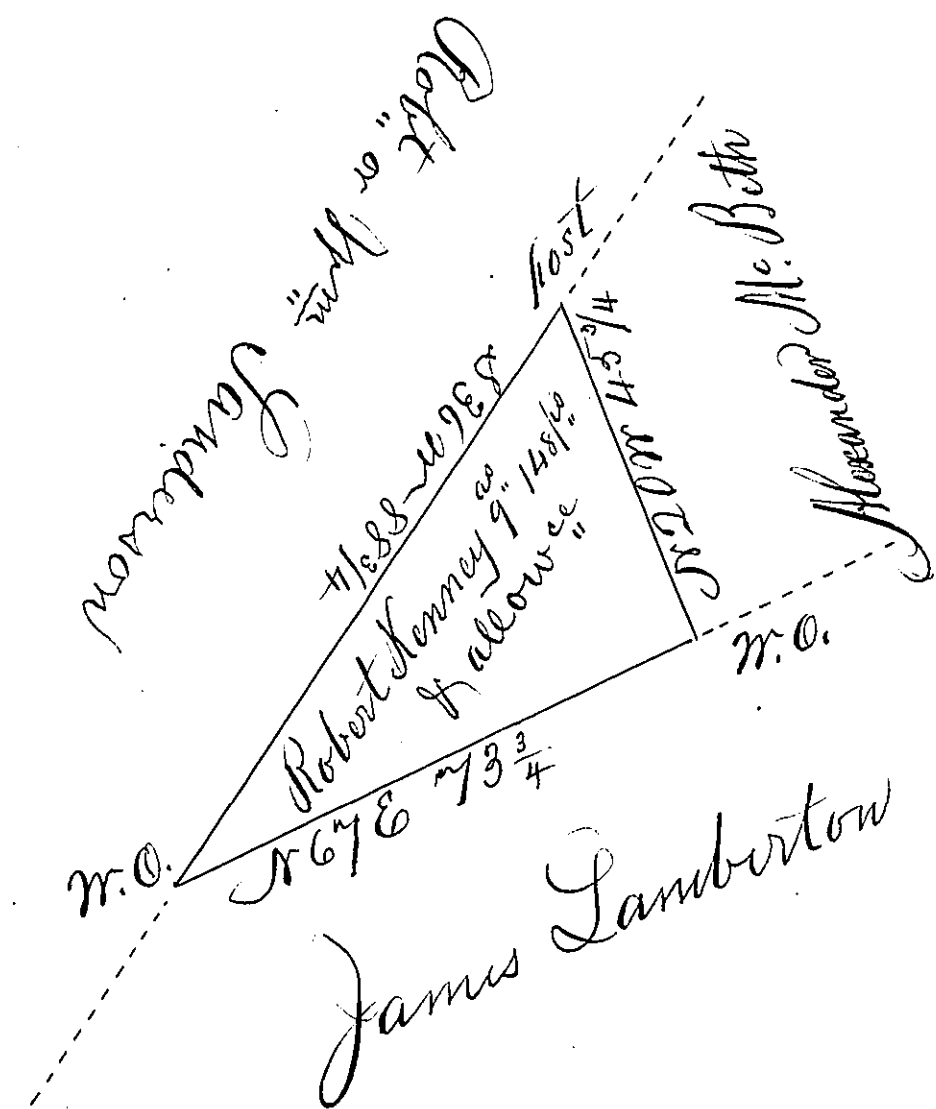 Robt. or Wm.
Sanderson
Post
Alexander Mc. Beth
S 36 W 88 3/4
N 20 W 45 3/4
Robert Kenney 9 as 148 ps
& allowce
W.O.
W.O.
N 67 E 73 3/4
James Lamberton